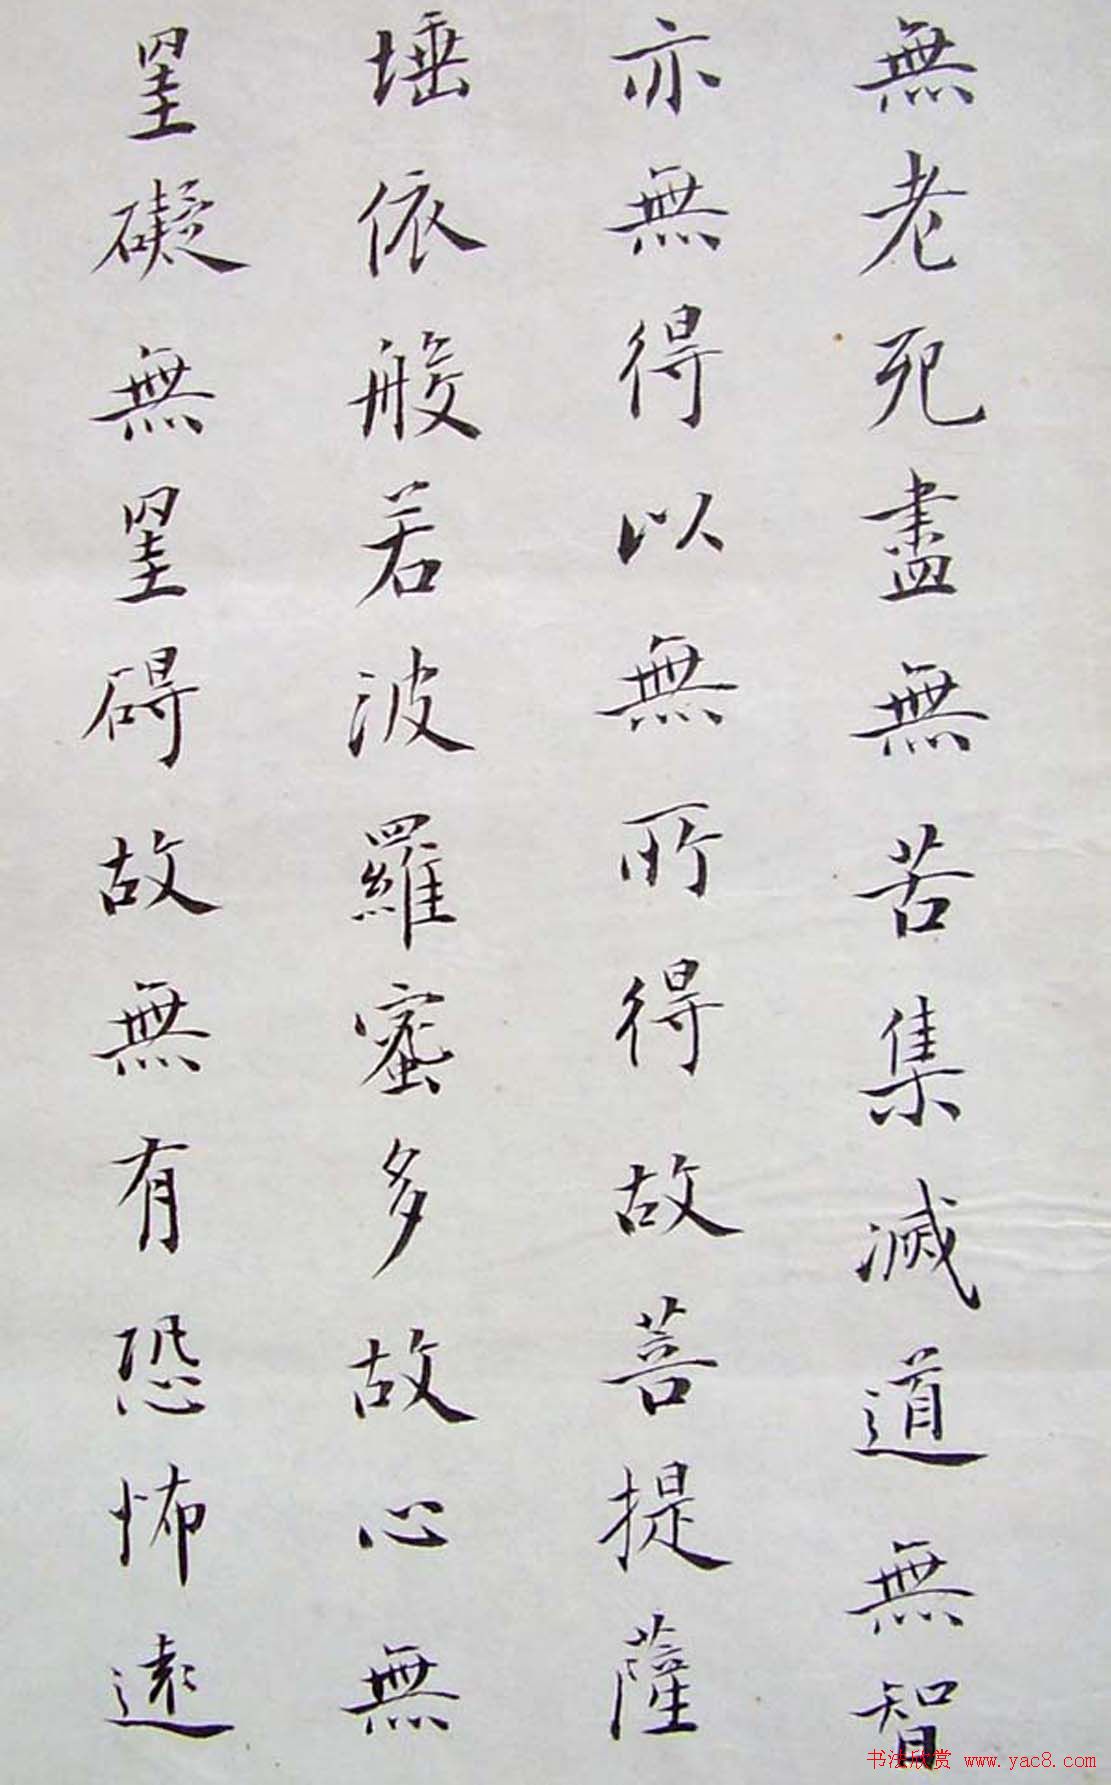 無老死盡無苦集滅道無智
亦無得以無所得故菩提薩
埵依般若波羅蜜多故心無
罣礙無罣碍故無有恐怖遠
书法欣赏 www.yac8.com